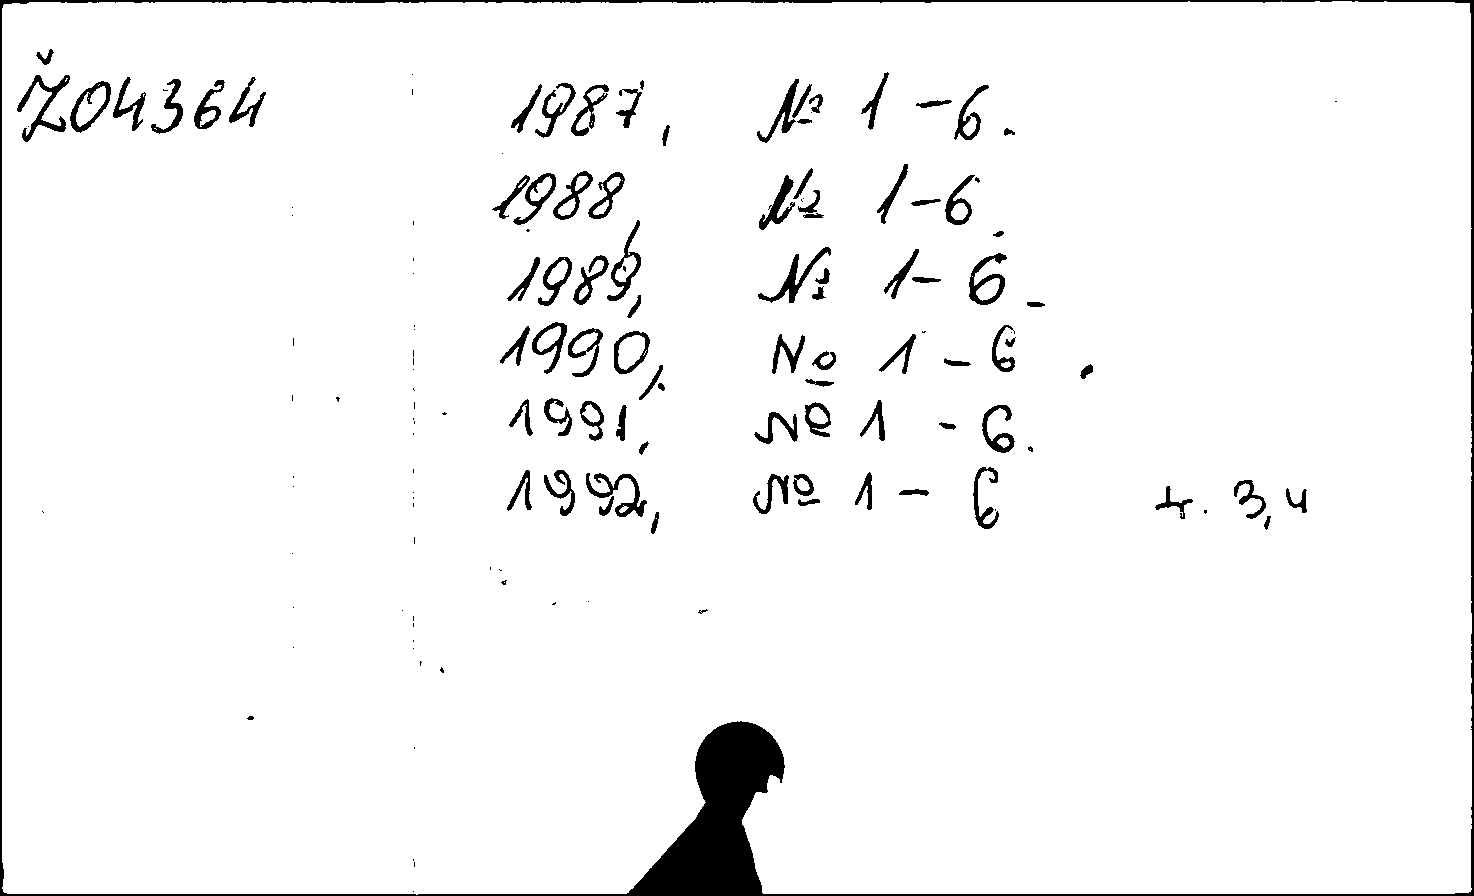 Ž04364 1987, № 1-6.
1988, № 1-6.
1989, № 1-6.
1990, № 1-6.
1991, № 1-6.
1992, № 1-6 3,4